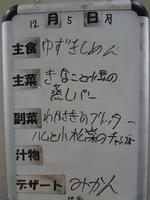 12月5日月
主食 ゆずきしめん
主菜 きなこと豆の
蒸しパン
副菜 わかさぎのフリッター
ハムと小松菜のチャンプルー
汁物
デザート みかん